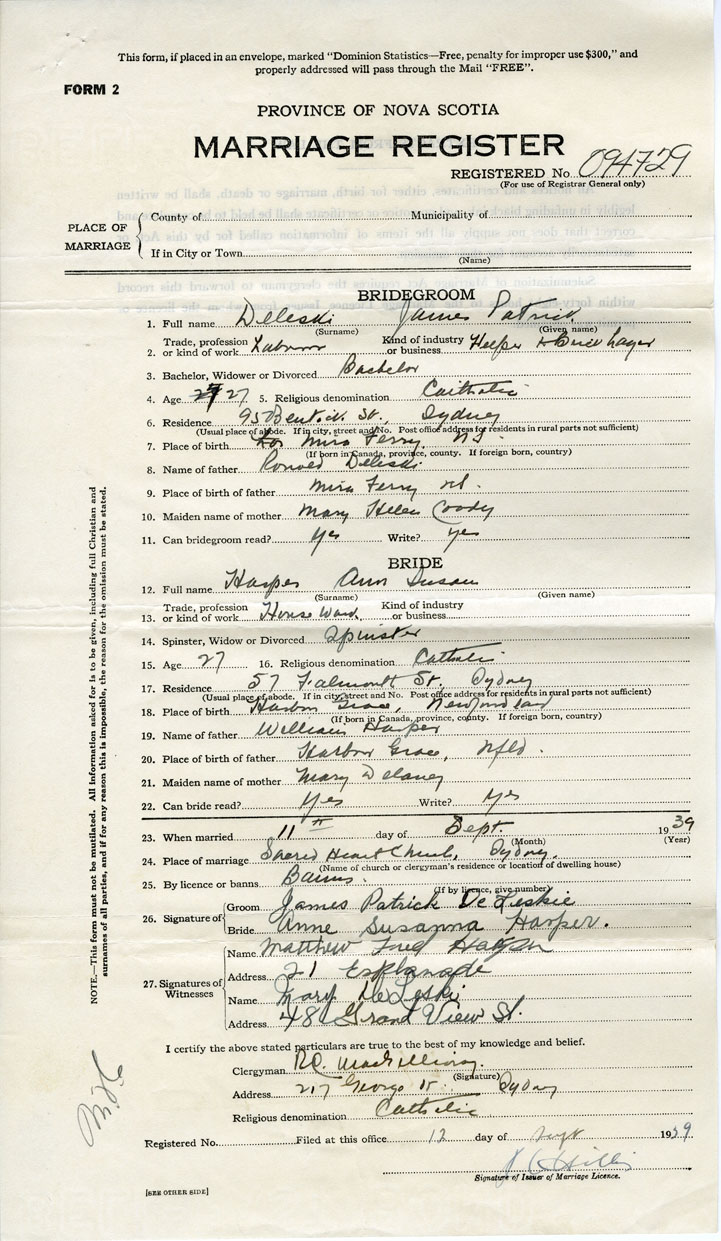 This form, if placed in an envelope, marked "Dominion Statistics—Free, penalty for improper use $300," and
properly addressed will pass through the Mail "FREE".
FORM 2
PROVINCE OF NOVA SCOTIA
MARRIAGE REGISTER
REGISTERED No. 094729
(For use of Registrar General only)
PLACE OF MARRIAGE
County of Municipality of
If in City or Town
(Name)
BRIDEGROOM
1. Full name Deleski James Patrick
(Surname) (Given name)
Trade, profession Kind of industry
2. or kind of work Labourer or business Helper to Brick layer
3. Bachelor, Widower or Divorced Bachelor
4. Age 27 5. Religious denomination Catholic
6. Residence 95 Bentick St., Sydney
(Usual place of abode. If in city, street and No. Post office address for residents in rural parts not sufficient)
7. Place of birth Mira Ferry NS
(If born in Canada, province, county. If foreign born, country)
8. Name of father Ronald Deleski
9. Place of birth of father Mira Ferry NS.
10. Maiden name of mother Mary Helen Coady
11. Can bridegroom read? Yes Write? Yes
BRIDE
12. Full name Harper Ann Susan
(Surname) (Given name)
Trade, profession Kind of industry
13. or kind of work House Work or business
14. Spinster, Widow or Divorced Spinster
15. Age 27 16. Religious denomination Catholic
17. Residence 57 Falmouth St. Sydney
(Usual place of abode. If in city, street and No. Post office address for residents in rural parts not sufficient)
18. Place of birth Harbor Grace, Newfoundland
(If born in Canada, province, county. If foreign born, country)
19. Name of father William Harper
20. Place of birth of father Harbor Grace, Nfld.
21. Maiden name of mother Mary Delaney
22. Can bride read? Yes Write? Yes
23. When married 11th day of Sept. 1939
(Month) (Year)
24. Place of marriage Sacred Heart Church, Sydney.
(Name of church or clergyman's residence or location of dwelling house)
25. By licence or banns Banns.
(If by licence, give number)
26. Signature of
Groom James Patrick DeLeskie
Bride Anne Susanna Harper.
27. Signatures of Witnesses
Name Matthew Fred
Address 21 Esplanade
Name Mary DeLeski
Address 48 Grand View St.
I certify the above stated particulars are true to the best of my knowledge and belief.
Clergyman R.C. MacGillivray.
(Signature)
Address 217 George St. Sydney
Religious denomination Catholic
Registered No. Filed at this office 12 day of Sept 1939
Signature of Issuer of Marriage Licence.
[SEE OTHER SIDE]
NOTE.—This form must not be mutilated. All Information asked for is to be given, including full Christian and
surnames of all parties, and if for any reason this is impossible, the reason for the omission must be stated.